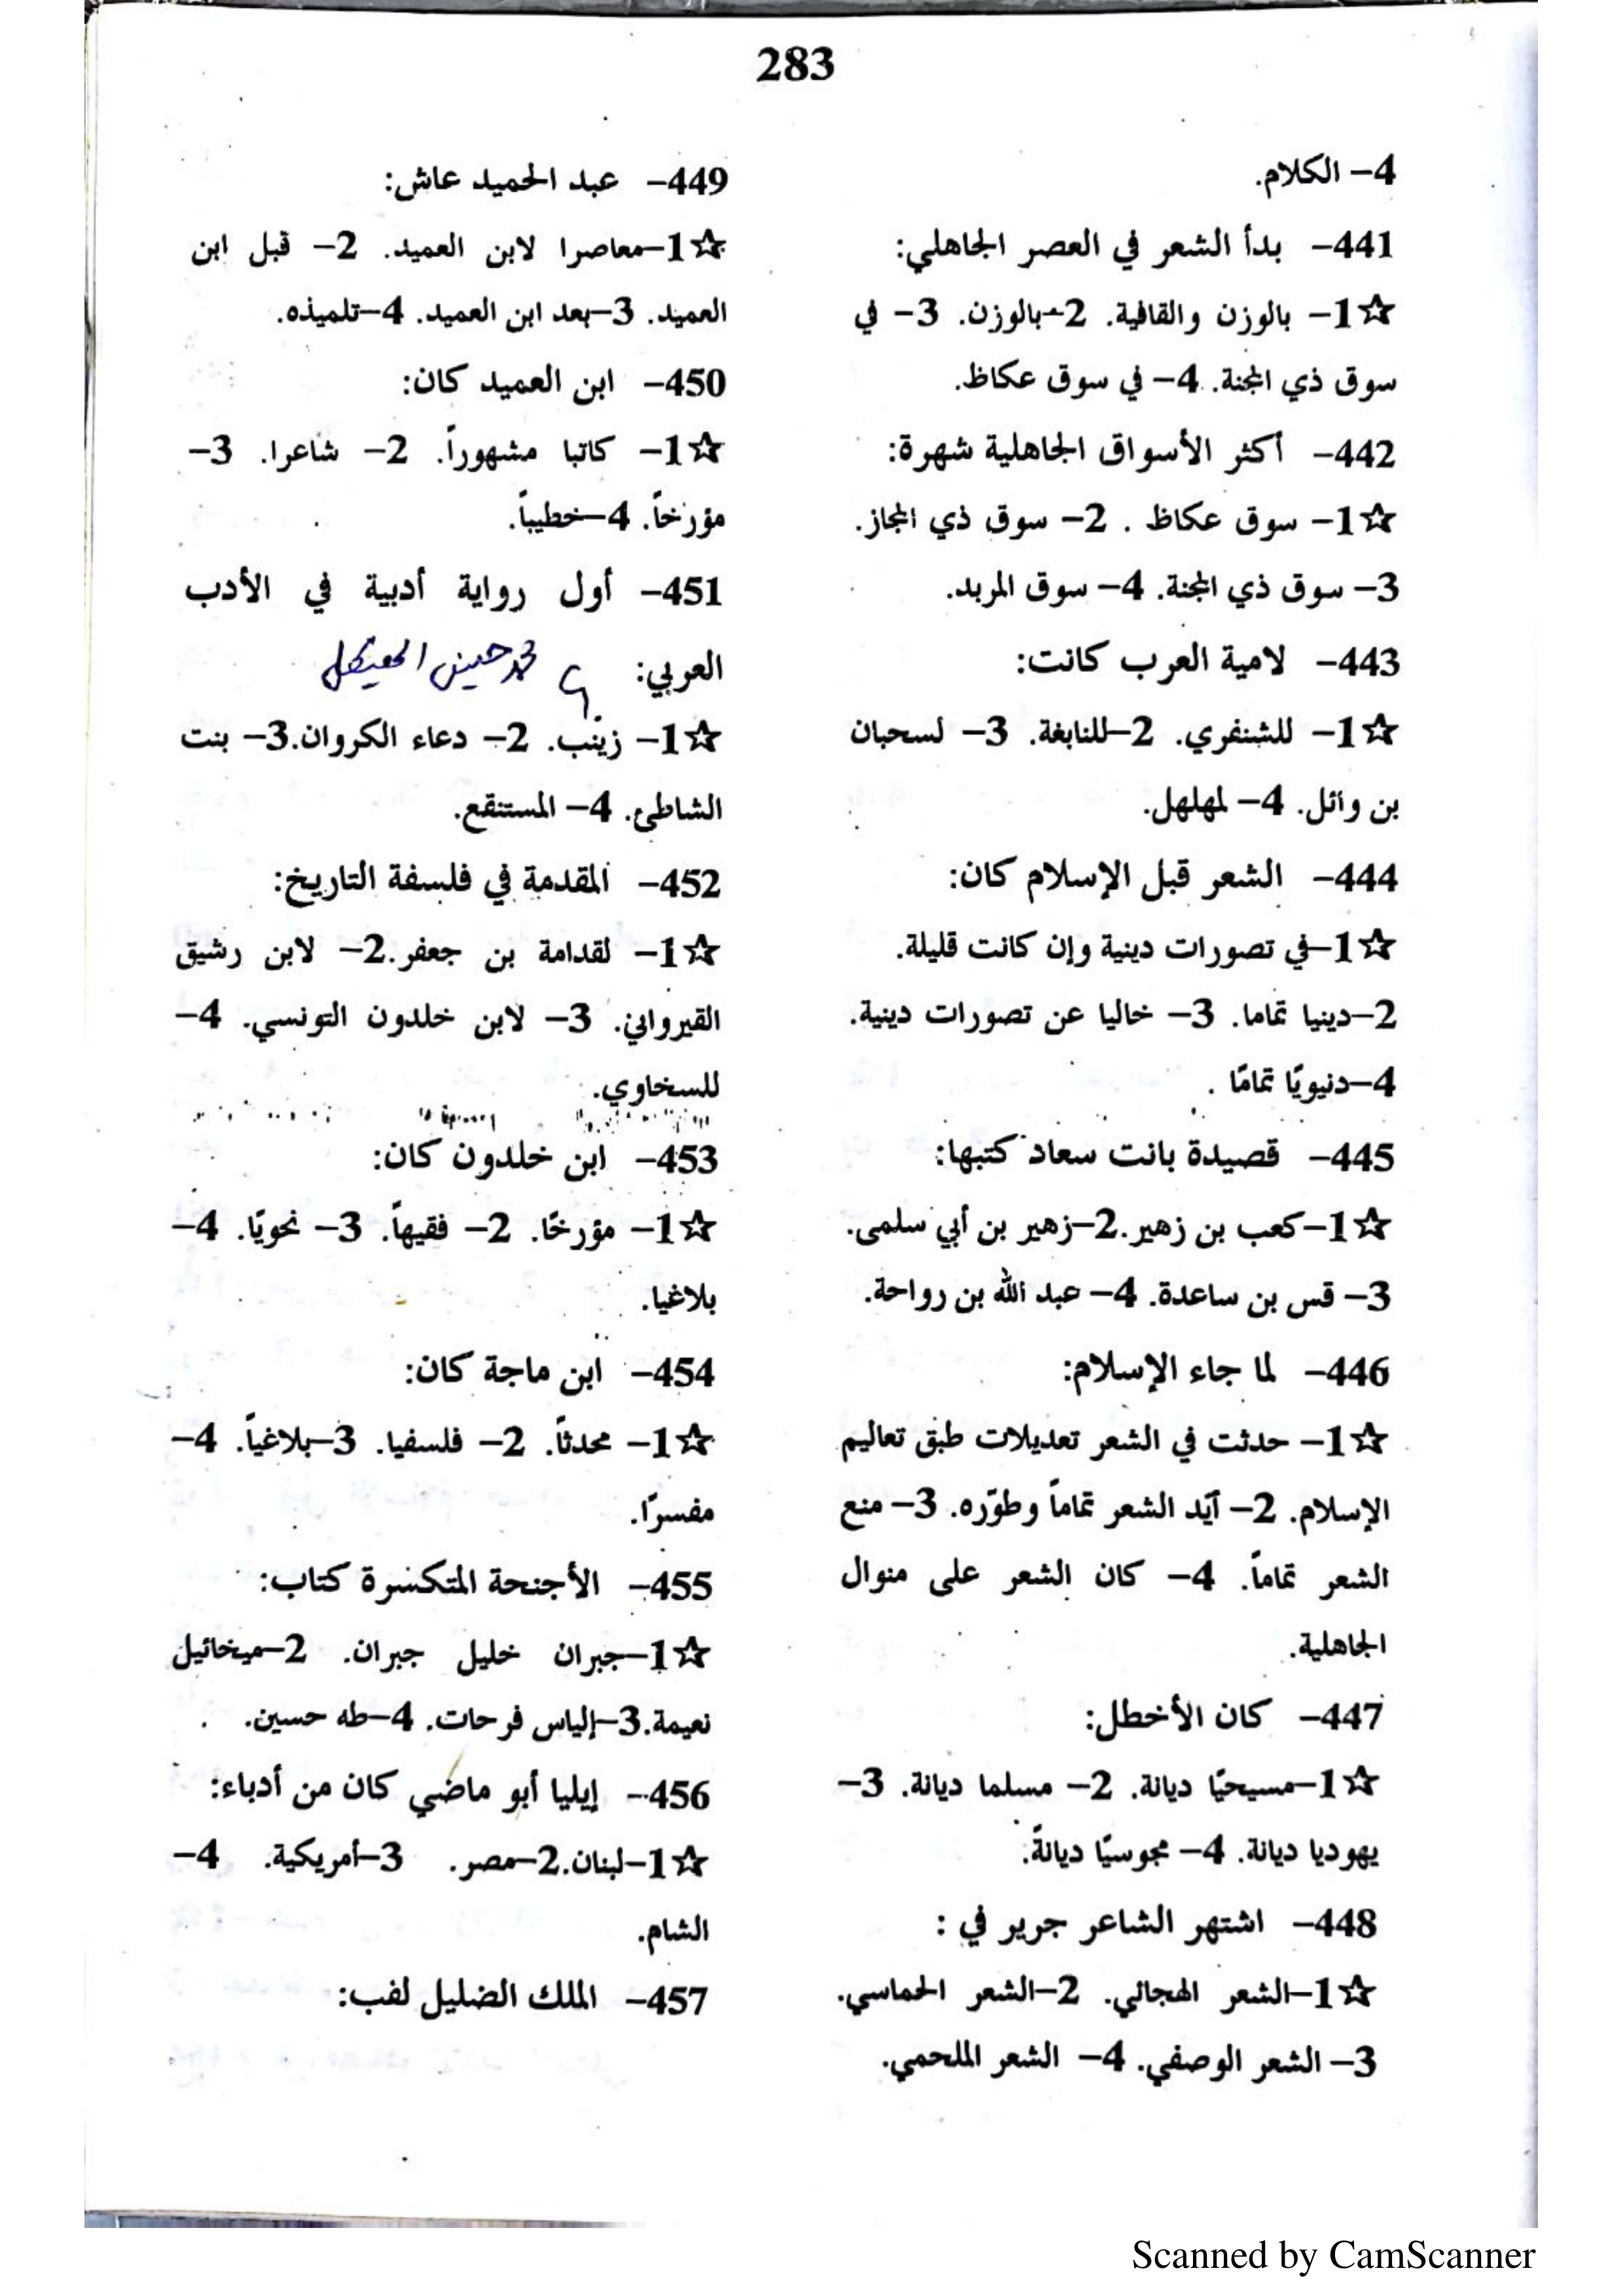 283
4– الكلام.
441– بدأ الشعر في العصر الجاهلي:
☆1– بالوزن والقافية. 2–بالوزن. 3– في
سوق ذي المجنة. 4– في سوق عكاظ.
442– أكثر الأسواق الجاهلية شهرة:
☆1– سوق عكاظ . 2– سوق ذي المجاز.
3– سوق ذي المجنة. 4– سوق المربد.
443– لامية العرب كانت:
☆1– للشنفري. 2–للنابغة. 3– لسحبان
بن وائل. 4– لمهلهل.
444– الشعر قبل الإسلام كان:
☆1–في تصورات دينية وإن كانت قليلة.
2–دينيا تماما. 3– خاليا عن تصورات دينية.
4–دنيويًا تمامًا .
445– قصيدة بانت سعاد كتبها:
☆1–كعب بن زهير.2–زهير بن أبي سلمى.
3– قس بن ساعدة. 4– عبد الله بن رواحة.
446– لما جاء الإسلام:
☆1– حدثت في الشعر تعديلات طبق تعاليم
الإسلام. 2– أيّد الشعر تماماً وطوّره. 3– منع
الشعر تماماً. 4– كان الشعر على منوال
الجاهلية.
447– كان الأخطل:
☆1–مسيحيًا ديانة. 2– مسلما ديانة. 3–
يهوديا ديانة. 4– مجوسيًا ديانةً.
448– اشتهر الشاعر جرير في :
☆1–الشعر الهجائي. 2–الشعر الحماسي.
3– الشعر الوصفي. 4– الشعر الملحمي.
449– عبد الحميد عاش:
☆1–معاصرا لابن العميد. 2– قبل ابن
العميد. 3–بعد ابن العميد. 4–تلميذه.
450– ابن العميد كان:
☆1– كاتبا مشهوراً. 2– شاعرا. 3–
مؤرخاً. 4–خطيباً.
451– أول رواية أدبية في الأدب
العربي: محمد حسين الهيكل
☆1– زينب. 2– دعاء الكروان.3– بنت
الشاطئ. 4– المستنقع.
452– المقدمة في فلسفة التاريخ:
☆1– لقدامة بن جعفر.2– لابن رشيق
القيرواني. 3– لابن خلدون التونسي. 4–
للسخاوي.
453– ابن خلدون كان:
☆1– مؤرخًا. 2– فقيهاً. 3– نحويًا. 4–
بلاغيا.
454– ابن ماجة كان:
☆1– محدثاً. 2– فلسفيا. 3–بلاغياً. 4–
مفسرًا.
455– الأجنحة المتكسرة كتاب:
☆1–جبران خليل جبران. 2–ميخائيل
نعيمة.3–إلياس فرحات. 4–طه حسين.
456– إيليا أبو ماضي كان من أدباء:
☆1–لبنان.2–مصر. 3–أمريكية. 4–
الشام.
457– الملك الضليل لقب:
Scanned by CamScanner